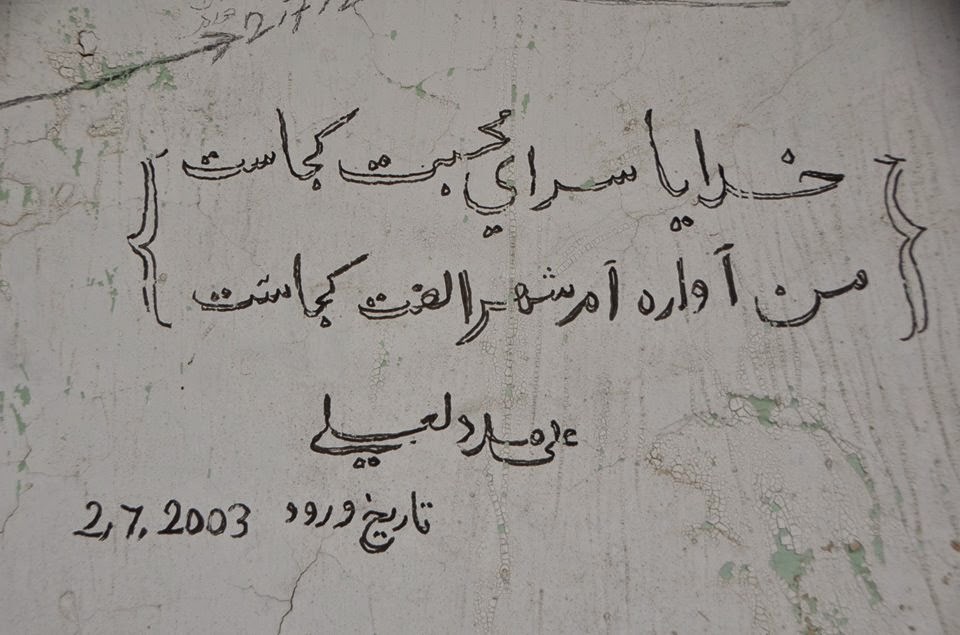 خدایا سرای محبت کجاست
من آواره اَم شهر الفت کجاست
علی مدد
تاریخ ورود 2,7,2003